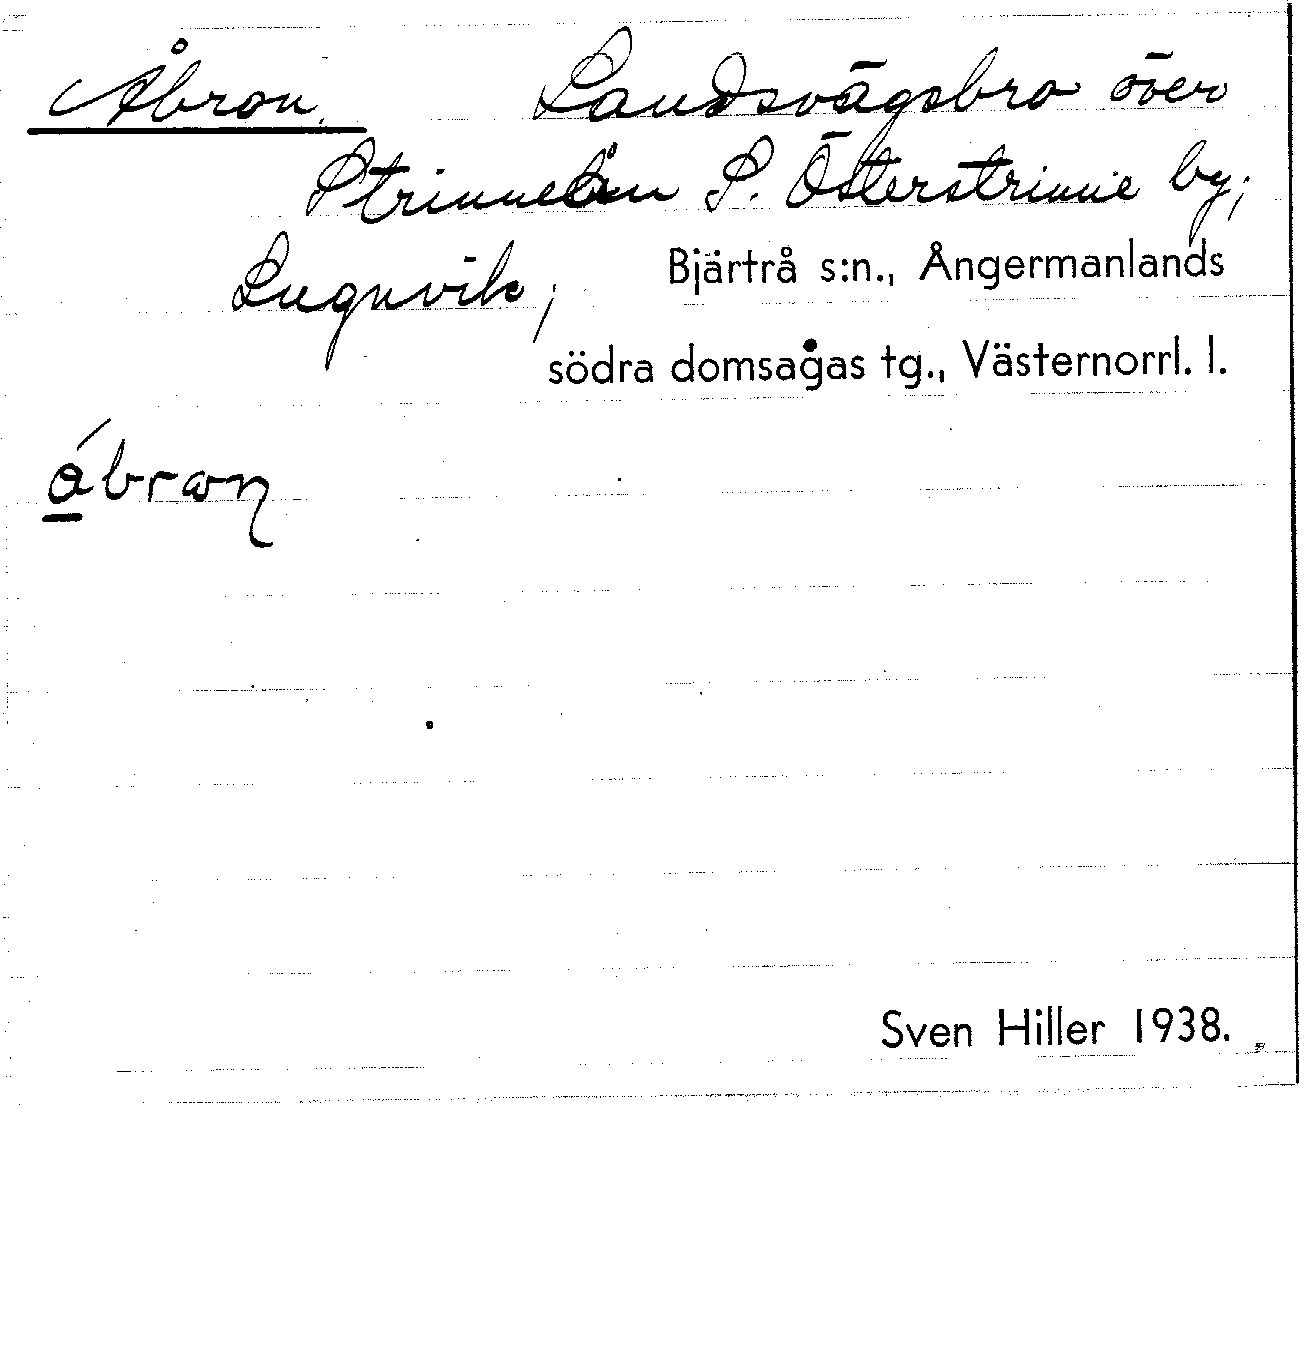 Åbron. Landsvägsbro över
Strinneån S. Österstrinne by,
Lugnvik, Bjärtrå s:n., Ångermanlands
södra domsagas tg., Västernorrl. l.
åbron
Sven Hiller 1938.